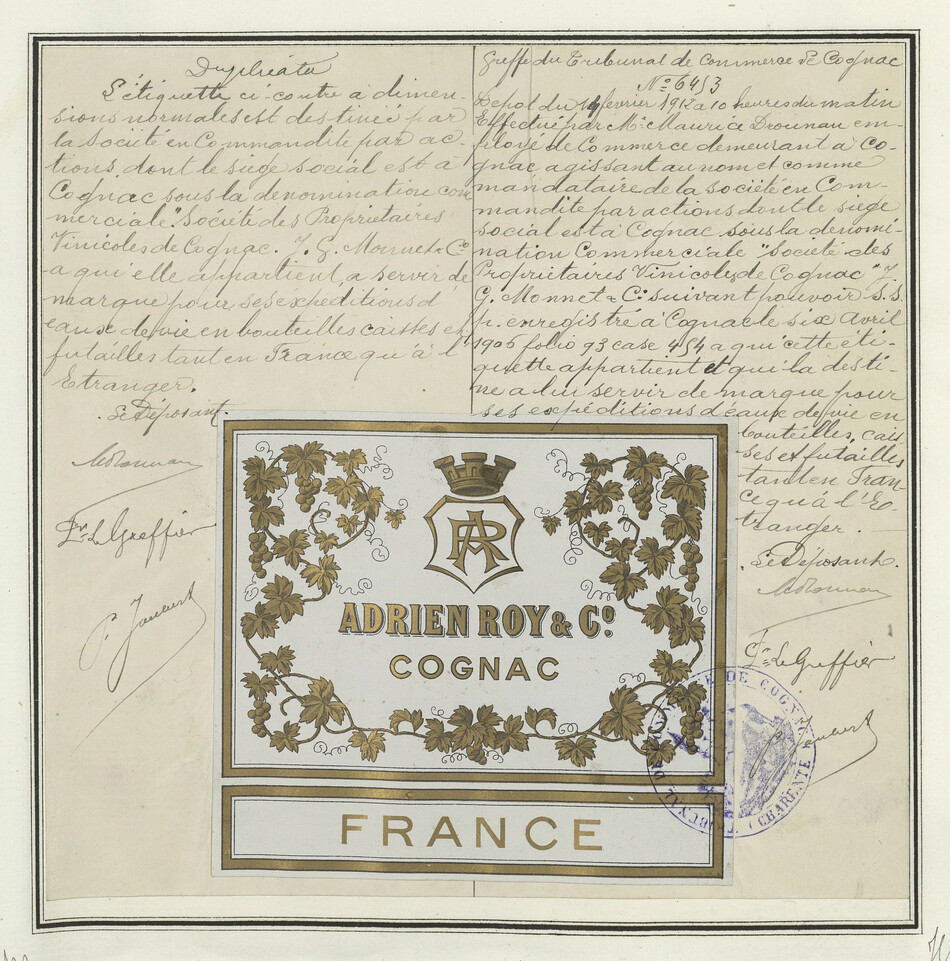 Duplicata
L'étiquette ci-contre à dimen-
sions normales est destinée par
la Société en Commandite par ac-
tions, dont le siège social est à
Cognac sous la dénomination com
merciale "Société des Propriétaires
Vinicoles de Cognac. J. G. Monnet & Co
a qui elle appartient, a servir de
marque pour ses expéditions d'
eaux de vie en bouteilles caisses et
futailles tant en France qu'à l'
Etranger.
Le Déposant
Pr. Le Greffier
Greffe du Tribunal de Commerce de Cognac
No 6453
Dépot du 14 février 1912 a 10 heures du matin
Effectué par Mr. Maurice Drounau em-
ployé de Commerce demeurant à Co-
gnac agissant au nom et comme
mandataire de la société en Com-
mandite par actions dont le siège
social est à Cognac sous la dénomi-
nation Commerciale "Société des
Propriétaires Vinicoles de Cognac" J.
G. Monnet & Co. suivant pouvoir s. s.
p. enregistré à Cognac le six Avril
1906 folio 93 case 454 a qui cette éti-
quette appartient et qui la desti-
ne a lui servir de marque pour
ses expéditions d'eaux de vie en
bouteilles, cais-
ses et futailles
tant en Fran-
ce qu'à l'E-
tranger.
Le Déposant.
Pr. Le Greffier
AR
ADRIEN ROY & Co.
COGNAC
FRANCE
TRIBUNAL DE COMMERCE DE COGNAC
(CHARENTE)